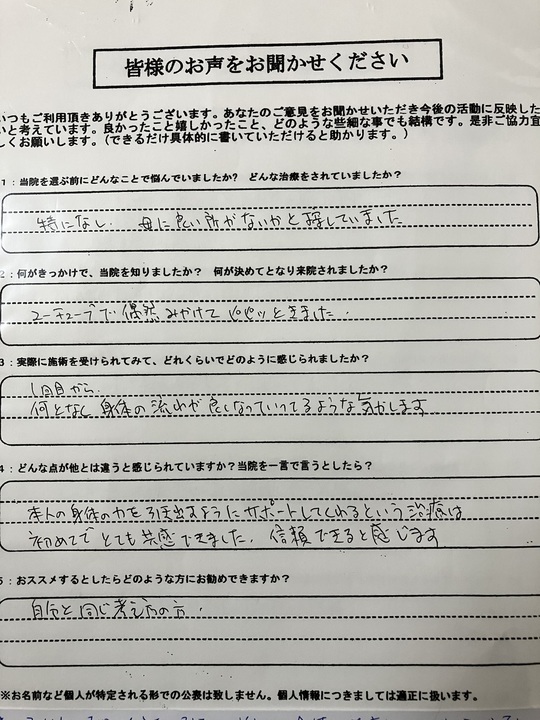 皆様のお声をお聞かせください
いつもご利用頂きありがとうございます。あなたのご意見をお聞かせいただき今後の活動に反映した
いと考えています。良かったこと嬉しかったこと、どのような些細な事でも結構です。是非ご協力宜
しくお願いします。（できるだけ具体的に書いていただけると助かります。）
1：当院を選ぶ前にどんなことで悩んでいましたか？　どんな治療をされていましたか？
特になし.　母に良い所がないかと探していました
2：何がきっかけで、当院を知りましたか？　何が決めてとなり来院されましたか？
ユーチューブで偶然みかけて ビビッときました.
3：実際に施術を受けられてみて、どれくらいでどのように感じられましたか？
1回目から.
何となく身体の流れが良くなっていってるような気がします
4：どんな点が他とは違うと感じられていますか？当院を一言で言うとしたら？
本人の身体の力を引き出すようにサポートしてくれるという治療は
初めてで とても共感できました. 信頼できると感じます
5：おススメするとしたらどのような方にお勧めできますか？
自分と同じ考え方の方.
※お名前など個人が特定される形での公表は致しません。個人情報につきましては適正に扱います。